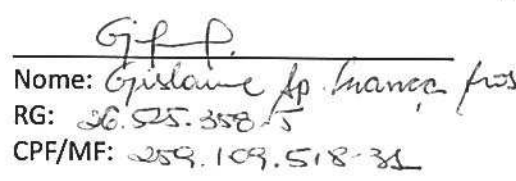 Nome: Gislaine Ap.
RG: 26.525.358-5
CPF/MF: 259.109.518-31